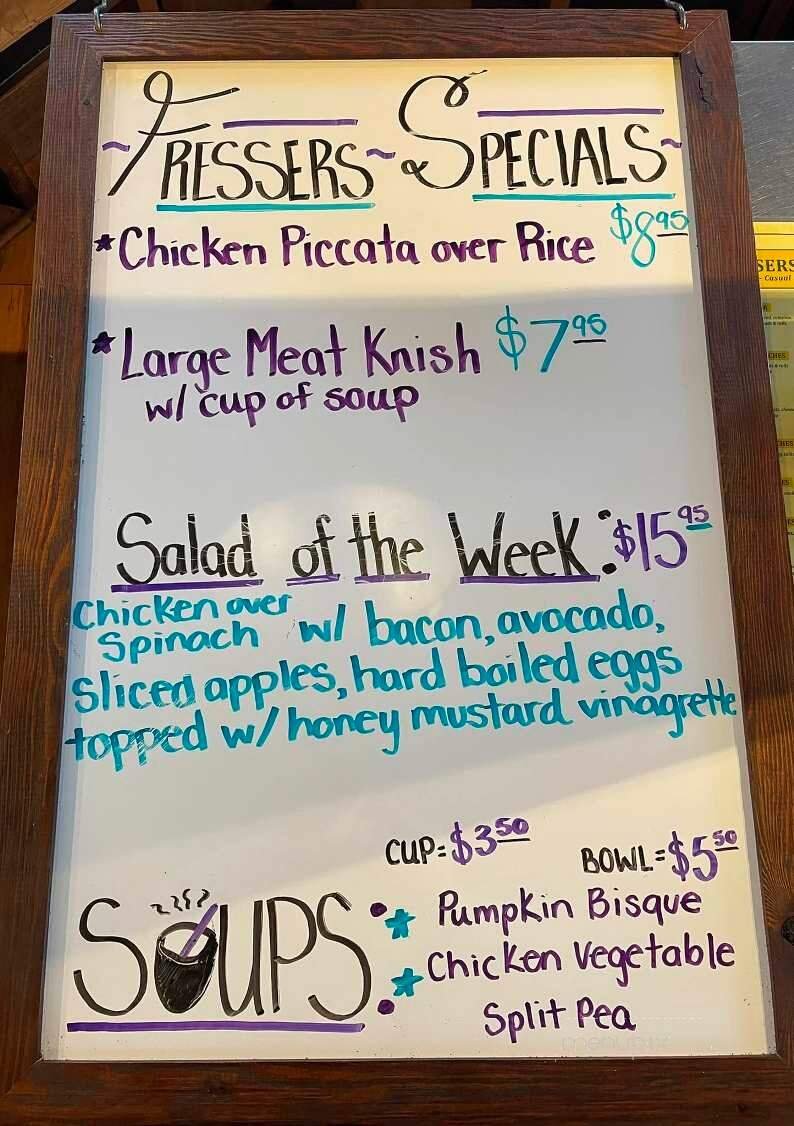 ~Fressers~ Specials~
*Chicken Piccata over Rice $8.95
*Large Meat Knish $7.95
w/ cup of soup
Salad of the Week: $15.95
Chicken over
Spinach w/ bacon, avocado,
sliced apples, hard boiled eggs
topped w/ honey mustard vinagrette
CUP=$3.50 BOWL=$5.50
SOUPS:
* Pumpkin Bisque
* Chicken Vegetable
Split Pea
SERS
Casual